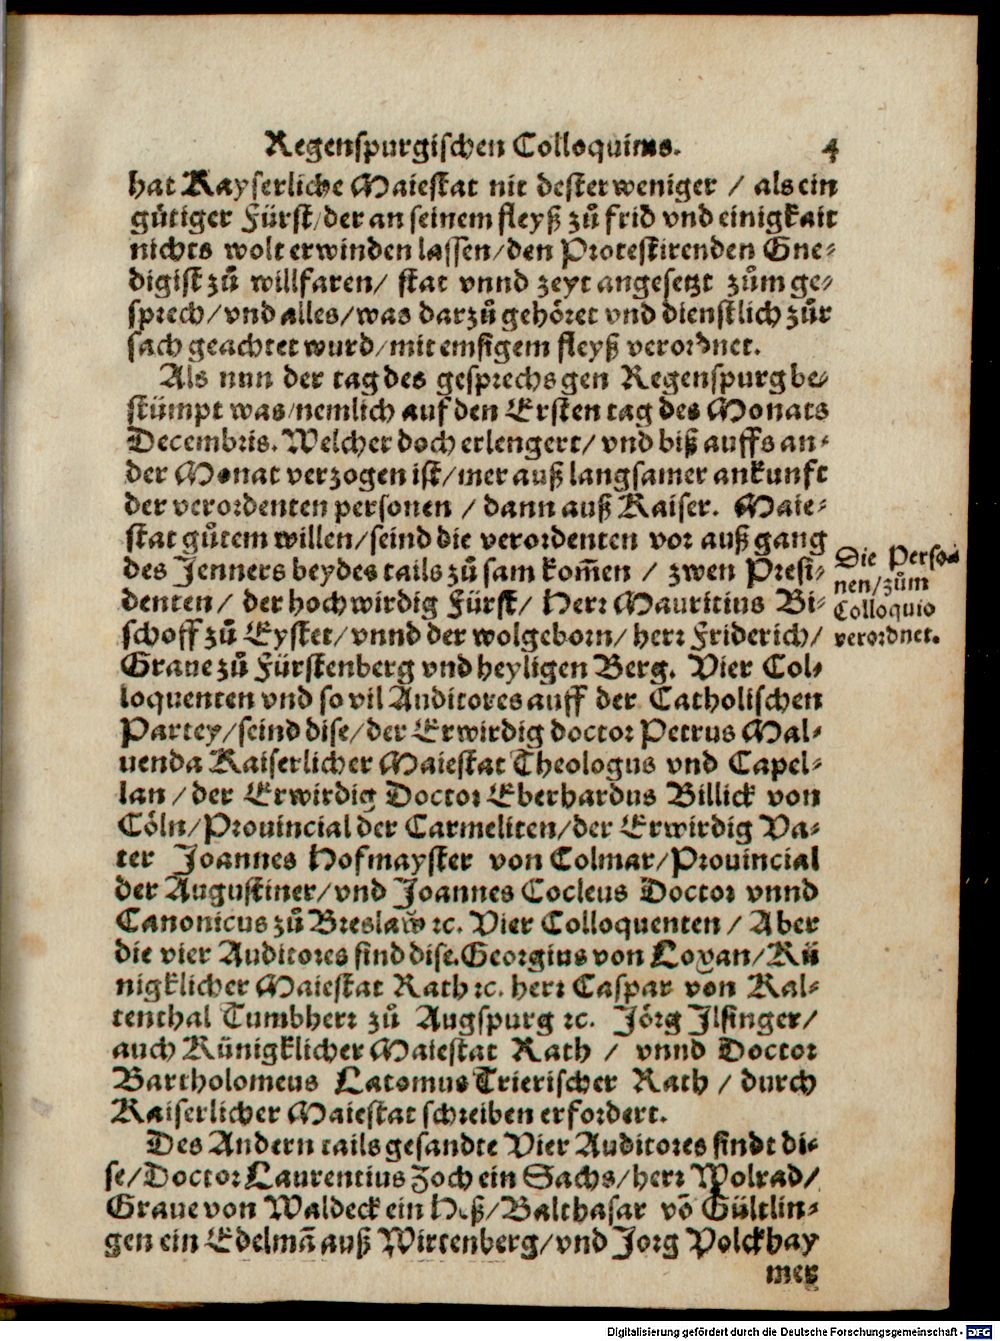 Regenspurgischen Colloquiums. 4
hat Kayserliche Maiestat nit dester weniger / als ein
gütiger Fürst/der an seinem fleyß zů frid vnd einigkait
nichts wolt erwinden lassen/den Protestirenden Gne⸗
digist zů willfaren/ stat vnnd zeyt angesetzt zům ge⸗
sprech/vnd alles/was darzů gehöret vnd dienstlich zůr
sach geachtet wurd/mit emsigem fleyß verordnet.
Als nun der tag des gesprechs gen Regenspurg be⸗
stümpt was/nemlich auf den Ersten tag des Monats
Decembris. Welcher doch erlengert/ vnd biß auffs an⸗
der Monat verzogen ist/mer auß langsamer ankunft
der verordenten personen / dann auß Kaiser. Maie⸗
stat gůtem willen/seind die verordenten vor auß gang
des Jenners beydes tails zů sam kom̃en / zwen Presi⸗
denten/ der hochwirdig Fürst/ Herr Mauritius Bi⸗
schoff zů Eystet/vnnd der wolgeborn/ herr Friderich/
Graue zů Fürstenberg vnd heyligen Berg. Vier Col⸗
loquenten vnd so vil Auditores auff der Catholischen
Partey/seind dise/der Erwirdig doctor Petrus Mal⸗
uenda Kaiserlicher Maiestat Theologus vnd Capel⸗
lan /der Erwirdig Doctor Eberhardus Billick von
Cöln/Prouincial der Carmeliten/der Erwirdig Va⸗
ter Joannes Hofmayster von Colmar/Prouincial
der Augustiner/vnd Joannes Cocleus Doctor vnnd
Canonicus zů Breslaw ꝛc. Vier Colloquenten / Aber
die vier Auditores sind dise.Georgius von Loxan/Kü
nigklicher Maiestat Rath ꝛc. herr Caspar von Kal⸗
tenthal Tumbherr zů Augspurg ꝛc. Jörg Jlsinger/
auch Künigklicher Maiestat Rath / vnnd Doctor
Bartholomeus Latomus Trierischer Rath / durch
Kaiserlicher Maiestat schreiben erfordert.
Des Andern tails gesandte Vier Auditores sindt di⸗
se/Doctor Laurentius Zoch ein Sachs/herr Wolrad/
Graue von Waldeck ein Heß/Balthasar võ Gültlin⸗
gen ein Edelmã auß Wirtenberg/vnd Jorg Volckhay
mer
Die Perso⸗
nen/zům
Colloquio
verordnet.
Digitalisierung gefördert durch die Deutsche Forschungsgemeinschaft - DFG